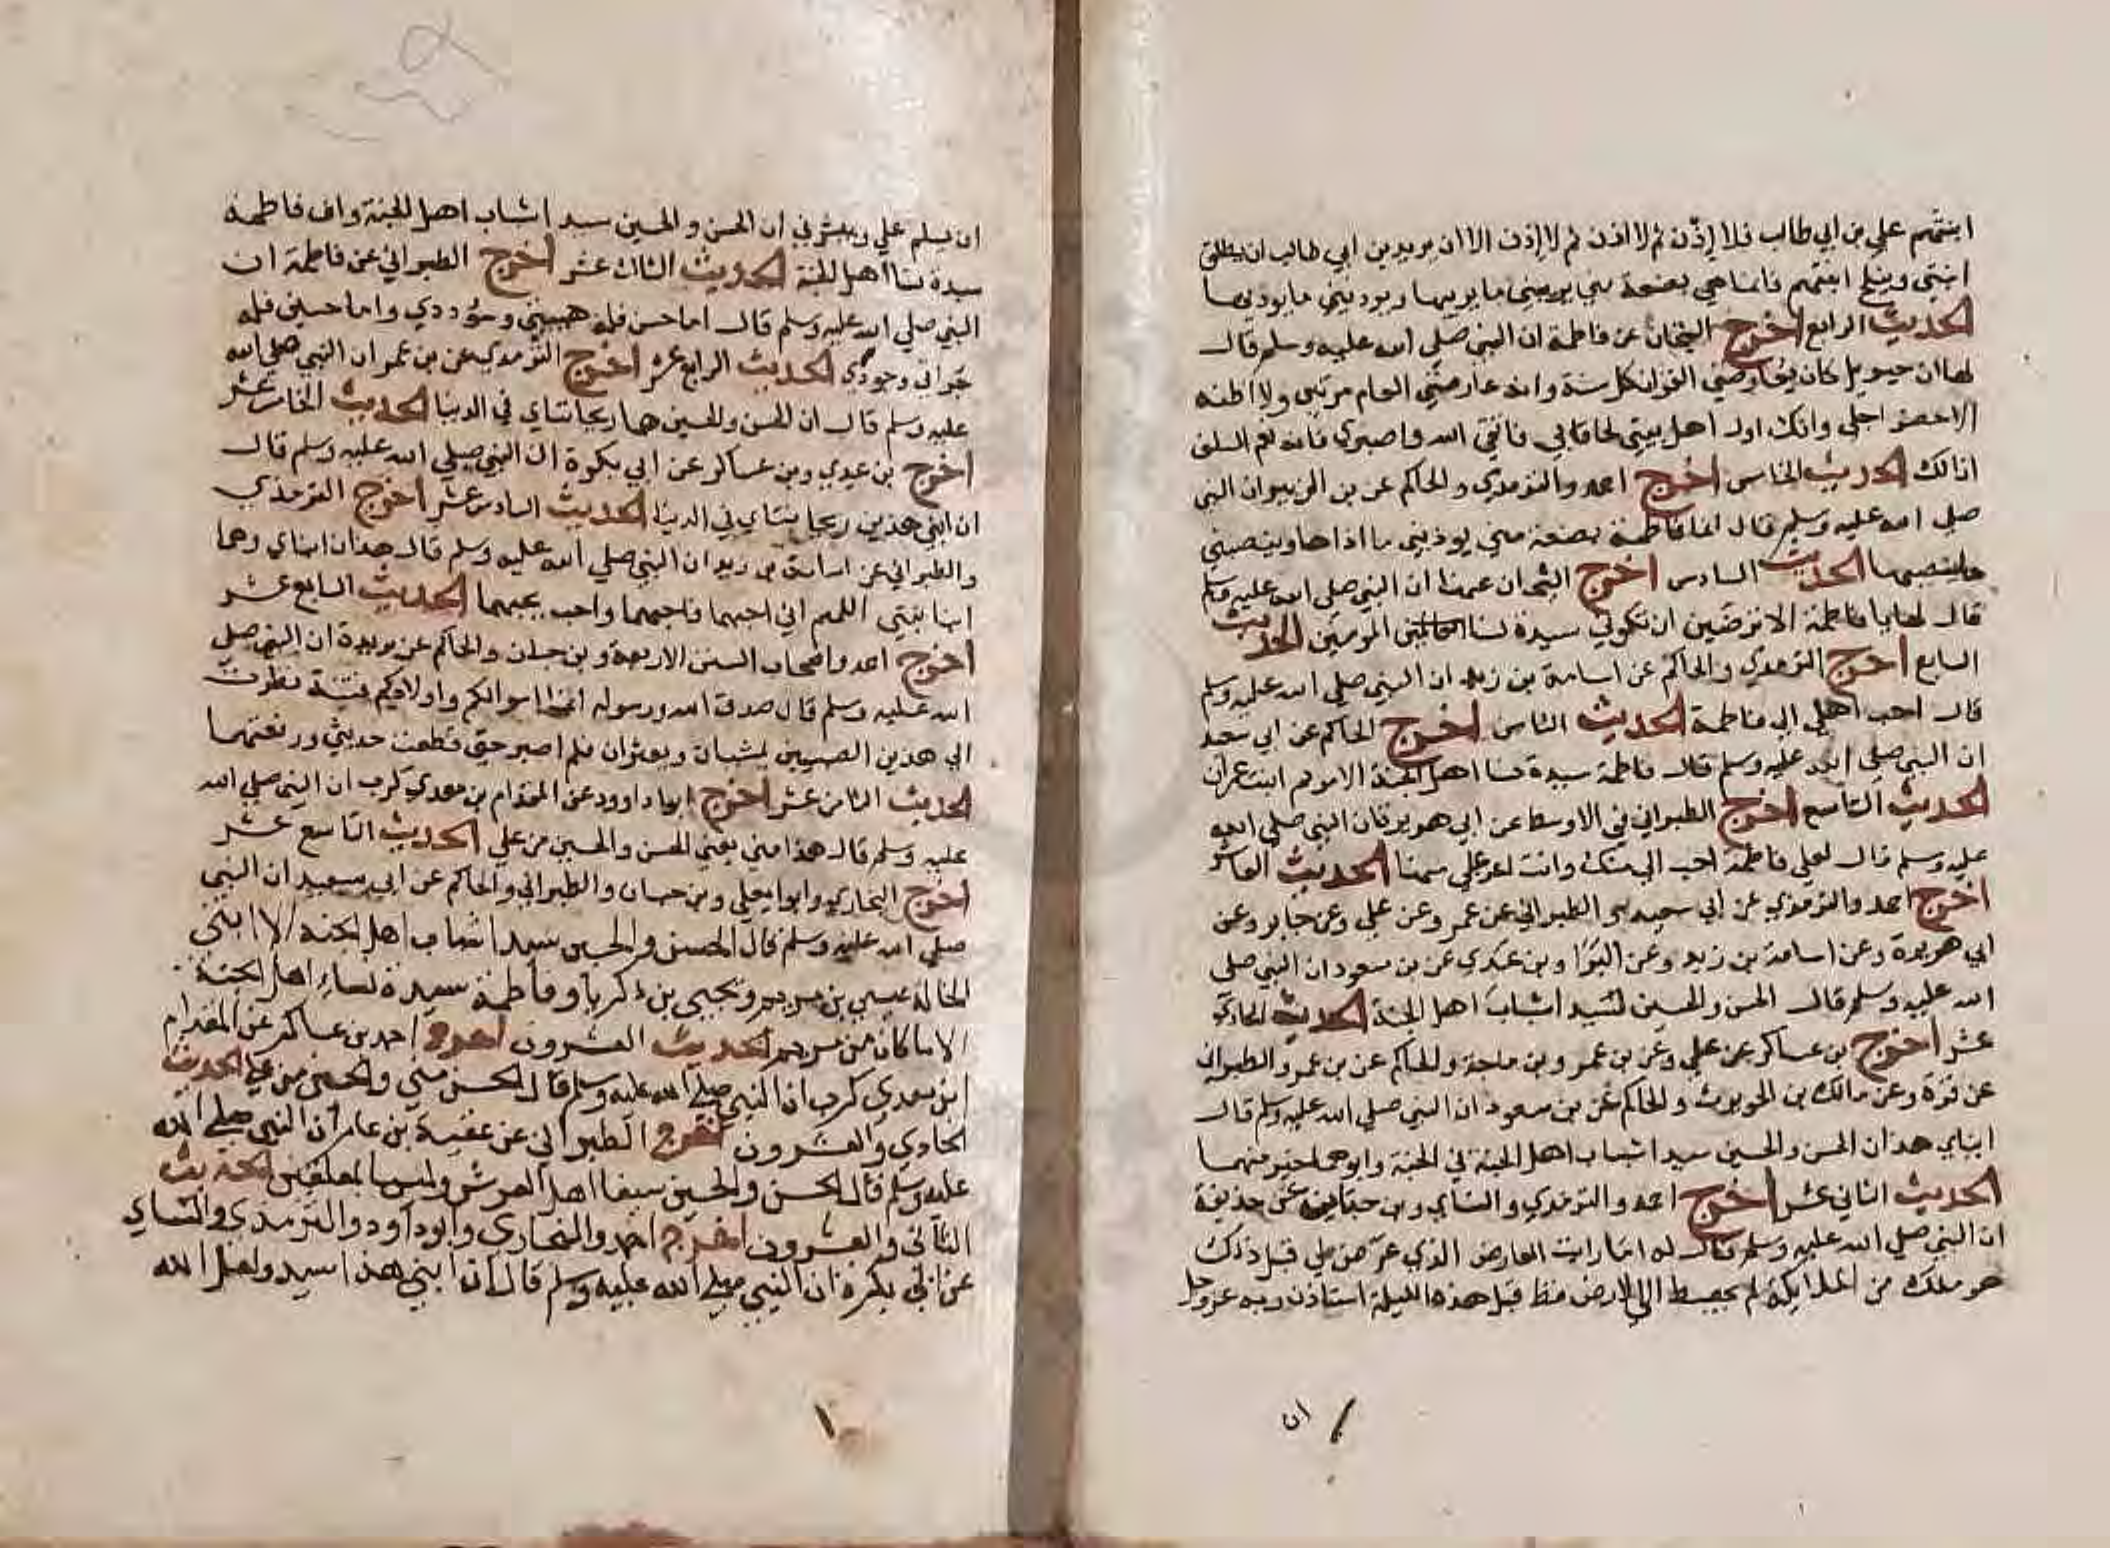 ابنتهم علي بن ابي طالب فلا إذن ثم لا اذن ثم لا إذن الا ان يريد بن ابي طالب ان يطلق
ابنتي وينكح ابنتهم فانما هي بضعة مني يريبني ما يريبها ويوذيني ما يوذيها
الحديث الرابع اخرج الشيخان عن فاطمة ان النبي صلى الله عليه وسلم قال
لها ان جبريل كان يعارضني القران كل سنة وانه عارضني العام مرتين ولا اظنه
الا حضر اجلي وانك اول اهل بيتي لحاقا بي فاتقي الله واصبري فانه نعم السلف
انا لك الحديث الخامس اخرج احمد والترمذي والحاكم عن بن الزبير ان النبي
صلى الله عليه وسلم قال انما فاطمة بضعة مني يوذيني ما اذاها وينصبني
ما ينصبها الحديث السادس اخرج الشيخان عنها ان النبي صلى الله عليه وسلم
قال لها يا فاطمة الا ترضين ان تكوني سيدة نسا المومنين الحديث
السابع اخرج الترمذي والحاكم عن اسامة بن زيد ان النبي صلي الله عليه وسلم
قال احب اهلي الي فاطمة الحديث الثامن اخرج الحاكم عن ابي سعيد
ان النبي صلى الله عليه وسلم قال فاطمة سيدة نسا اهل الجنة الا مريم ابنت عمران
الحديث التاسع اخرج الطبراني في الاوسط عن ابي هريرة ان النبي صلى الله
عليه وسلم قال لعلي فاطمة احب الي منك وانت اعز علي منها الحديث العاشر
اخرج احمد والترمذي عن ابي سعيد الطبراني عن عمر وعن علي وعن جابر وعن
ابي هريرة وعن اسامة بن زيد وعن البرا وبن عدي عن بن مسعود ان النبي صلى
الله عليه وسلم قال الحسن والحسين سيد اشباب اهل الجنة الحديث الحادي
عشر اخرج بن عساكر عن علي وعن بن عمر وبن ماجة والحاكم عن بن عمر والطبراني
عن قرة وعن مالك بن الحويرث والحاكم عن بن مسعود ان النبي صلي الله عليه وسلم قال
ابناي هذان الحسن والحسين سيد اشباب اهل الجنة في الجنة وابوهما خير منهما
الحديث الثاني عشر اخرج احمد والترمذي والنساي وبن حبان عن حذيفة
ان النبي صلي الله عليه وسلم قال له اما رايت العارض الذي عرض لي قبل ذلك
هو ملك من الملايكة لم يهبط الي الارض قط قبل هذه الليلة استاذن ربه عز وجل
ان
ان يسلم علي ويبشرني ان الحسن والحسين سيد اشباب اهل الجنة وان فاطمة
سيدة نسا اهل الجنة الحديث الثالث عشر اخرج الطبراني عن فاطمة ان
النبي صلي الله عليه وسلم قال اما حسن فله هيبتي وسؤددي واما حسين فله
جراتي وجودي الحديث الرابع عشر اخرج الترمذي عن بن عمر ان النبي صلي الله
عليه وسلم قال ان الحسن والحسين هما ريحانتاي في الدنيا الحديث الخامس عشر
اخرج بن عدي وبن عساكر عن ابي بكرة ان النبي صلي الله عليه وسلم قال
ان ابني هذين ريحانتاي في الدنيا الحديث السادس عشر اخرج الترمذي
والطبراني عن اسامة بن زيد ان النبي صلي الله عليه وسلم قال هذان ابناي وهما
ابنا بنتي اللهم اني احبهما فاحبهما واحب من يحبهما الحديث السابع عشر
اخرج احمد واصحاب السنن الاربعة وبن حبان والحاكم عن بريدة ان النبي صلي
الله عليه وسلم قال صدق الله ورسوله انما اموالكم واولادكم فتنة نظرت
الي هذين الصبيين يمشيان ويعثران فلم اصبر حتي قطعت حديثي ورفعتهما
الحديث الثامن عشر اخرج ابوا داوود عن المقدام بن معدي كرب ان النبي صلي الله
عليه وسلم قال هذا مني يعني الحسن والحسين من علي الحديث التاسع عشر
اخرج البخاري وابوا يعلي وبن حبان والطبراني والحاكم عن ابي سعيد ان النبي
صلي الله عليه وسلم قال الحسن والحسين سيد اشباب اهل الجنة الا ابني
الخالة عيسي بن مريم ويحيي بن زكريا وفاطمة سيدة نساء اهل الجنة
الا ما كان من مريم الحديث العشرون اخرج احمد بن عساكر عن المقدام
ابن معدي كرب ان النبي صلي الله عليه وسلم قال الحسن مني والحسين من علي الحديث
الحادي والعشرون اخرج الطبراني عن عقبة بن عامر ان النبي صلي الله
عليه وسلم قال الحسن والحسين سيفا اهل العرش وليسا بمعلقين الحديث
الثاني والعشرون اخرج احمد والبخاري وابو داود والترمذي والنساي
عن ابي بكرة ان النبي صلي الله عليه وسلم قال ان ابني هذا سيد ولعل الله